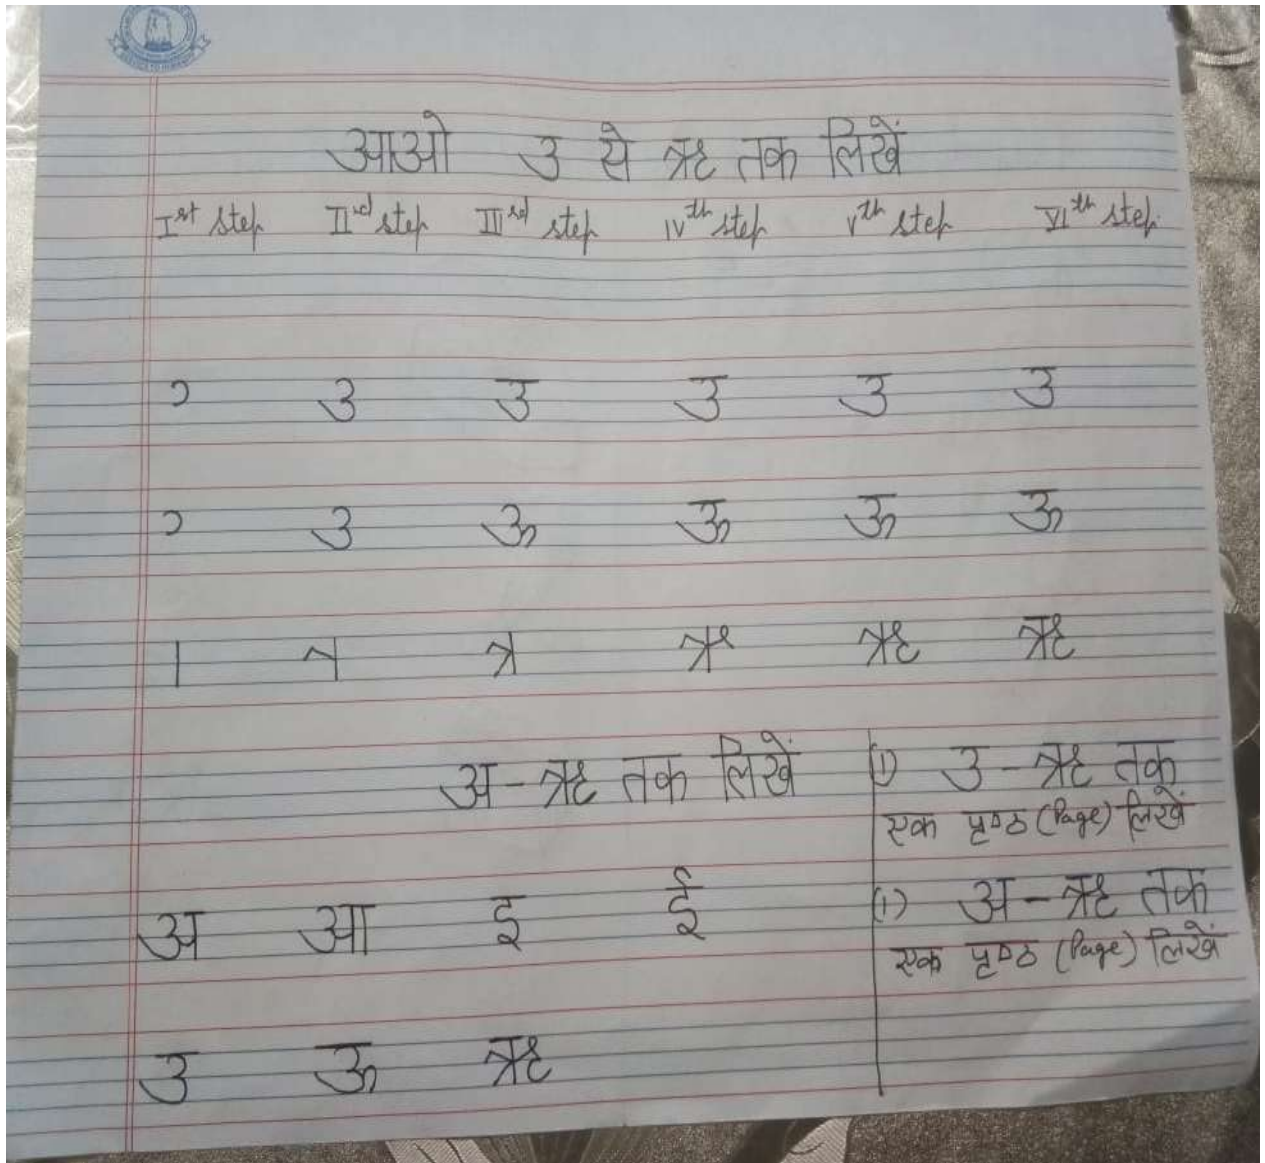 आओ उ से ऋ तक लिखें
Ist step IInd step IIIrd step IVth step Vth step VIth step
उ उ उ उ उ
उ ऊ ऊ ऊ ऊ
। ऋ ऋ
अ-ऋ तक लिखें
अ आ इ ई
उ ऊ ऋ
(1) उ-ऋ तक
एक पृष्ठ (Page) लिखें
(1) अ-ऋ तक
एक पृष्ठ (Page) लिखें